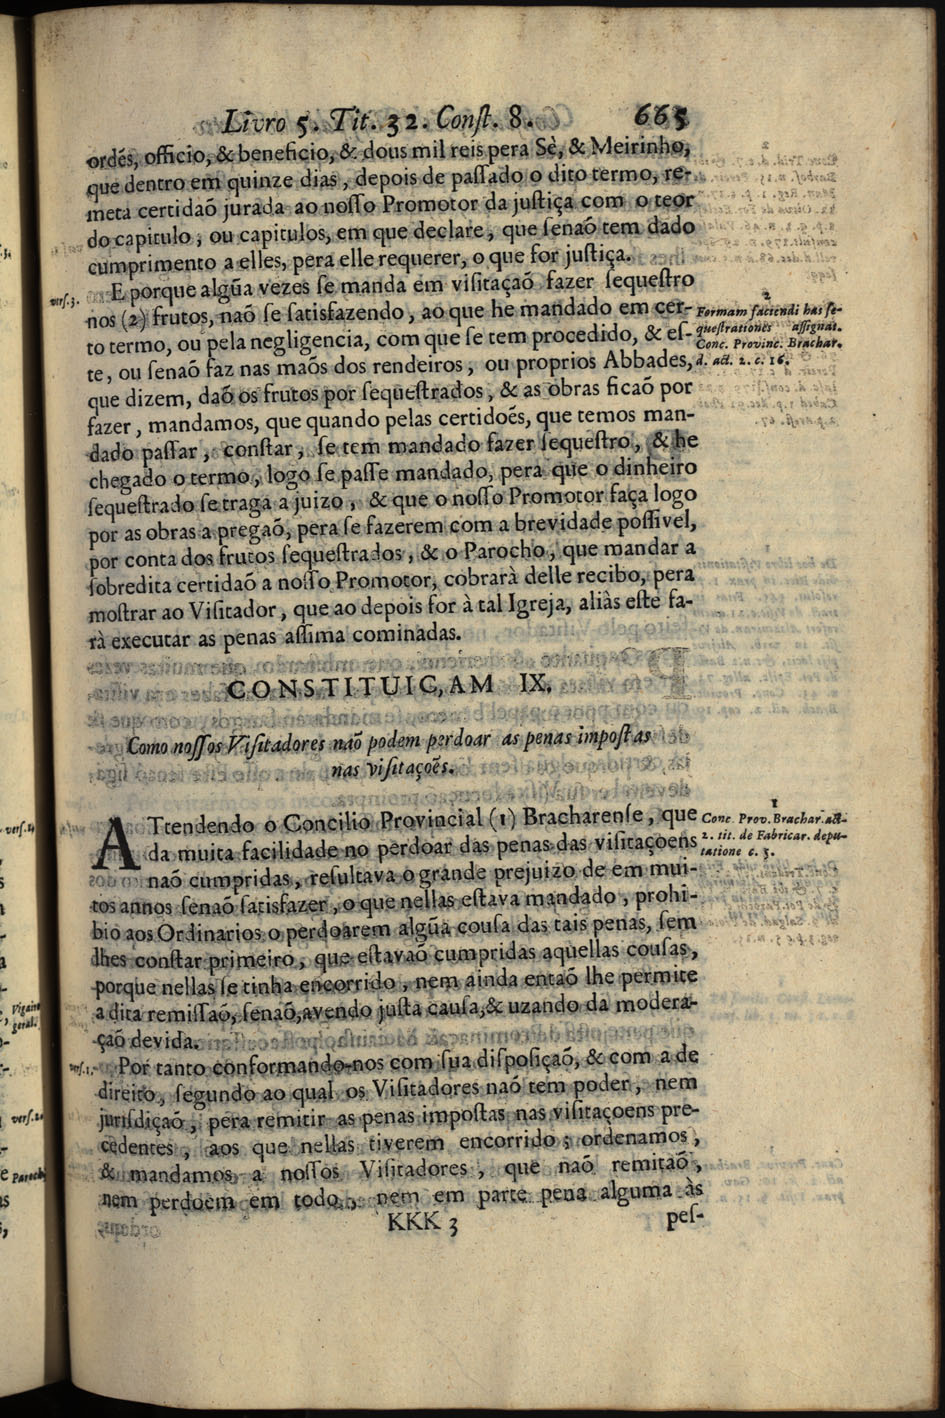 Livro 5. Tit. 32. Conſt. 8. 665
ordẽs, officio, & beneficio, & dous mil reis pera Sè, & Meirinho,
que dentro em quinze dias, depois de paſſado o dito termo, re-
meta certidaõ jurada ao noſſo Promotor da juſtiça com o teor
do capitulo, ou capitulos, em que declare, que ſenaõ tem dado
cumprimento a elles, pera elle requerer, o que for juſtiça.
verſ. 3.
E porque algũa vezes ſe manda em viſitaçaõ fazer ſequeſtro
nos (2) frutos, naõ ſe ſatisfazendo, ao que he mandado em cer-
to termo, ou pela negligencia, com que ſe tem procedido, & eſ-
te, ou ſenaõ faz nas maõs dos rendeiros, ou proprios Abbades,
que dizem, daõ os frutos por ſequeſtrados, & as obras ficaõ por
fazer, mandamos, que quando pelas certidoẽs, que temos man-
dado paſſar, conſtar, ſe tem mandado fazer ſequeſtro, & he
chegado o termo, logo ſe paſſe mandado, pera que o dinheiro
ſequeſtrado ſe traga a juizo, & que o noſſo Promotor faça logo
por as obras a pregaõ, pera ſe fazerem com a brevidade poſſivel,
por conta dos frutos ſequeſtrados, & o Parocho, que mandar a
ſobredita certidaõ a noſſo Promotor, cobrarà delle recibo, pera
moſtrar ao Viſitador, que ao depois for à tal Igreja, aliàs eſte fa-
rà executar as penas aſſima cominadas.
2
Formam faciendi has ſe-
queſtrationes aſſignat.
Conc. Provinc. Brachar.
d. act. 2. c. 16.
CONSTITUIC,AM IX.
Como noſſos Viſitadores naõ podem perdoar as penas impoſtas
nas viſitaçoẽs.
ATtendendo o Concilio Provincial (1) Bracharenſe, que
da muita facilidade no perdoar das penas das viſitaçoens
naõ cumpridas, reſultava o grande prejuizo de em mui-
tos annos ſenaõ ſatisfazer, o que nellas eſtava mandado, prohi-
bio aos Ordinarios o perdoarem algũa couſa das tais penas, ſem
lhes conſtar primeiro, que eſtavaõ cumpridas aquellas couſas,
porque nellas ſe tinha encorrido, nem ainda entaõ lhe permite
a dita remiſſaõ, ſenaõ, avendo juſta cauſa, & uzando da modera-
çaõ devida.
1
Conc. Prov. Brachar. act.
2. tit. de Fabricar. depu-
tatione c. 3.
verſ. 1.
Por tanto conformando-nos com ſua diſpoſiçaõ, & com a de
direito, ſegundo ao qual os Viſitadores naõ tem poder, nem
juriſdiçaõ, pera remitir as penas impoſtas nas viſitaçoens pre-
cedentes, aos que nellas tiverem encorrido; ordenamos,
& mandamos a noſſos Viſitadores, que naõ remitaõ,
nem perdoem em todo, nem em parte pena alguma às
KKK 3 peſ-